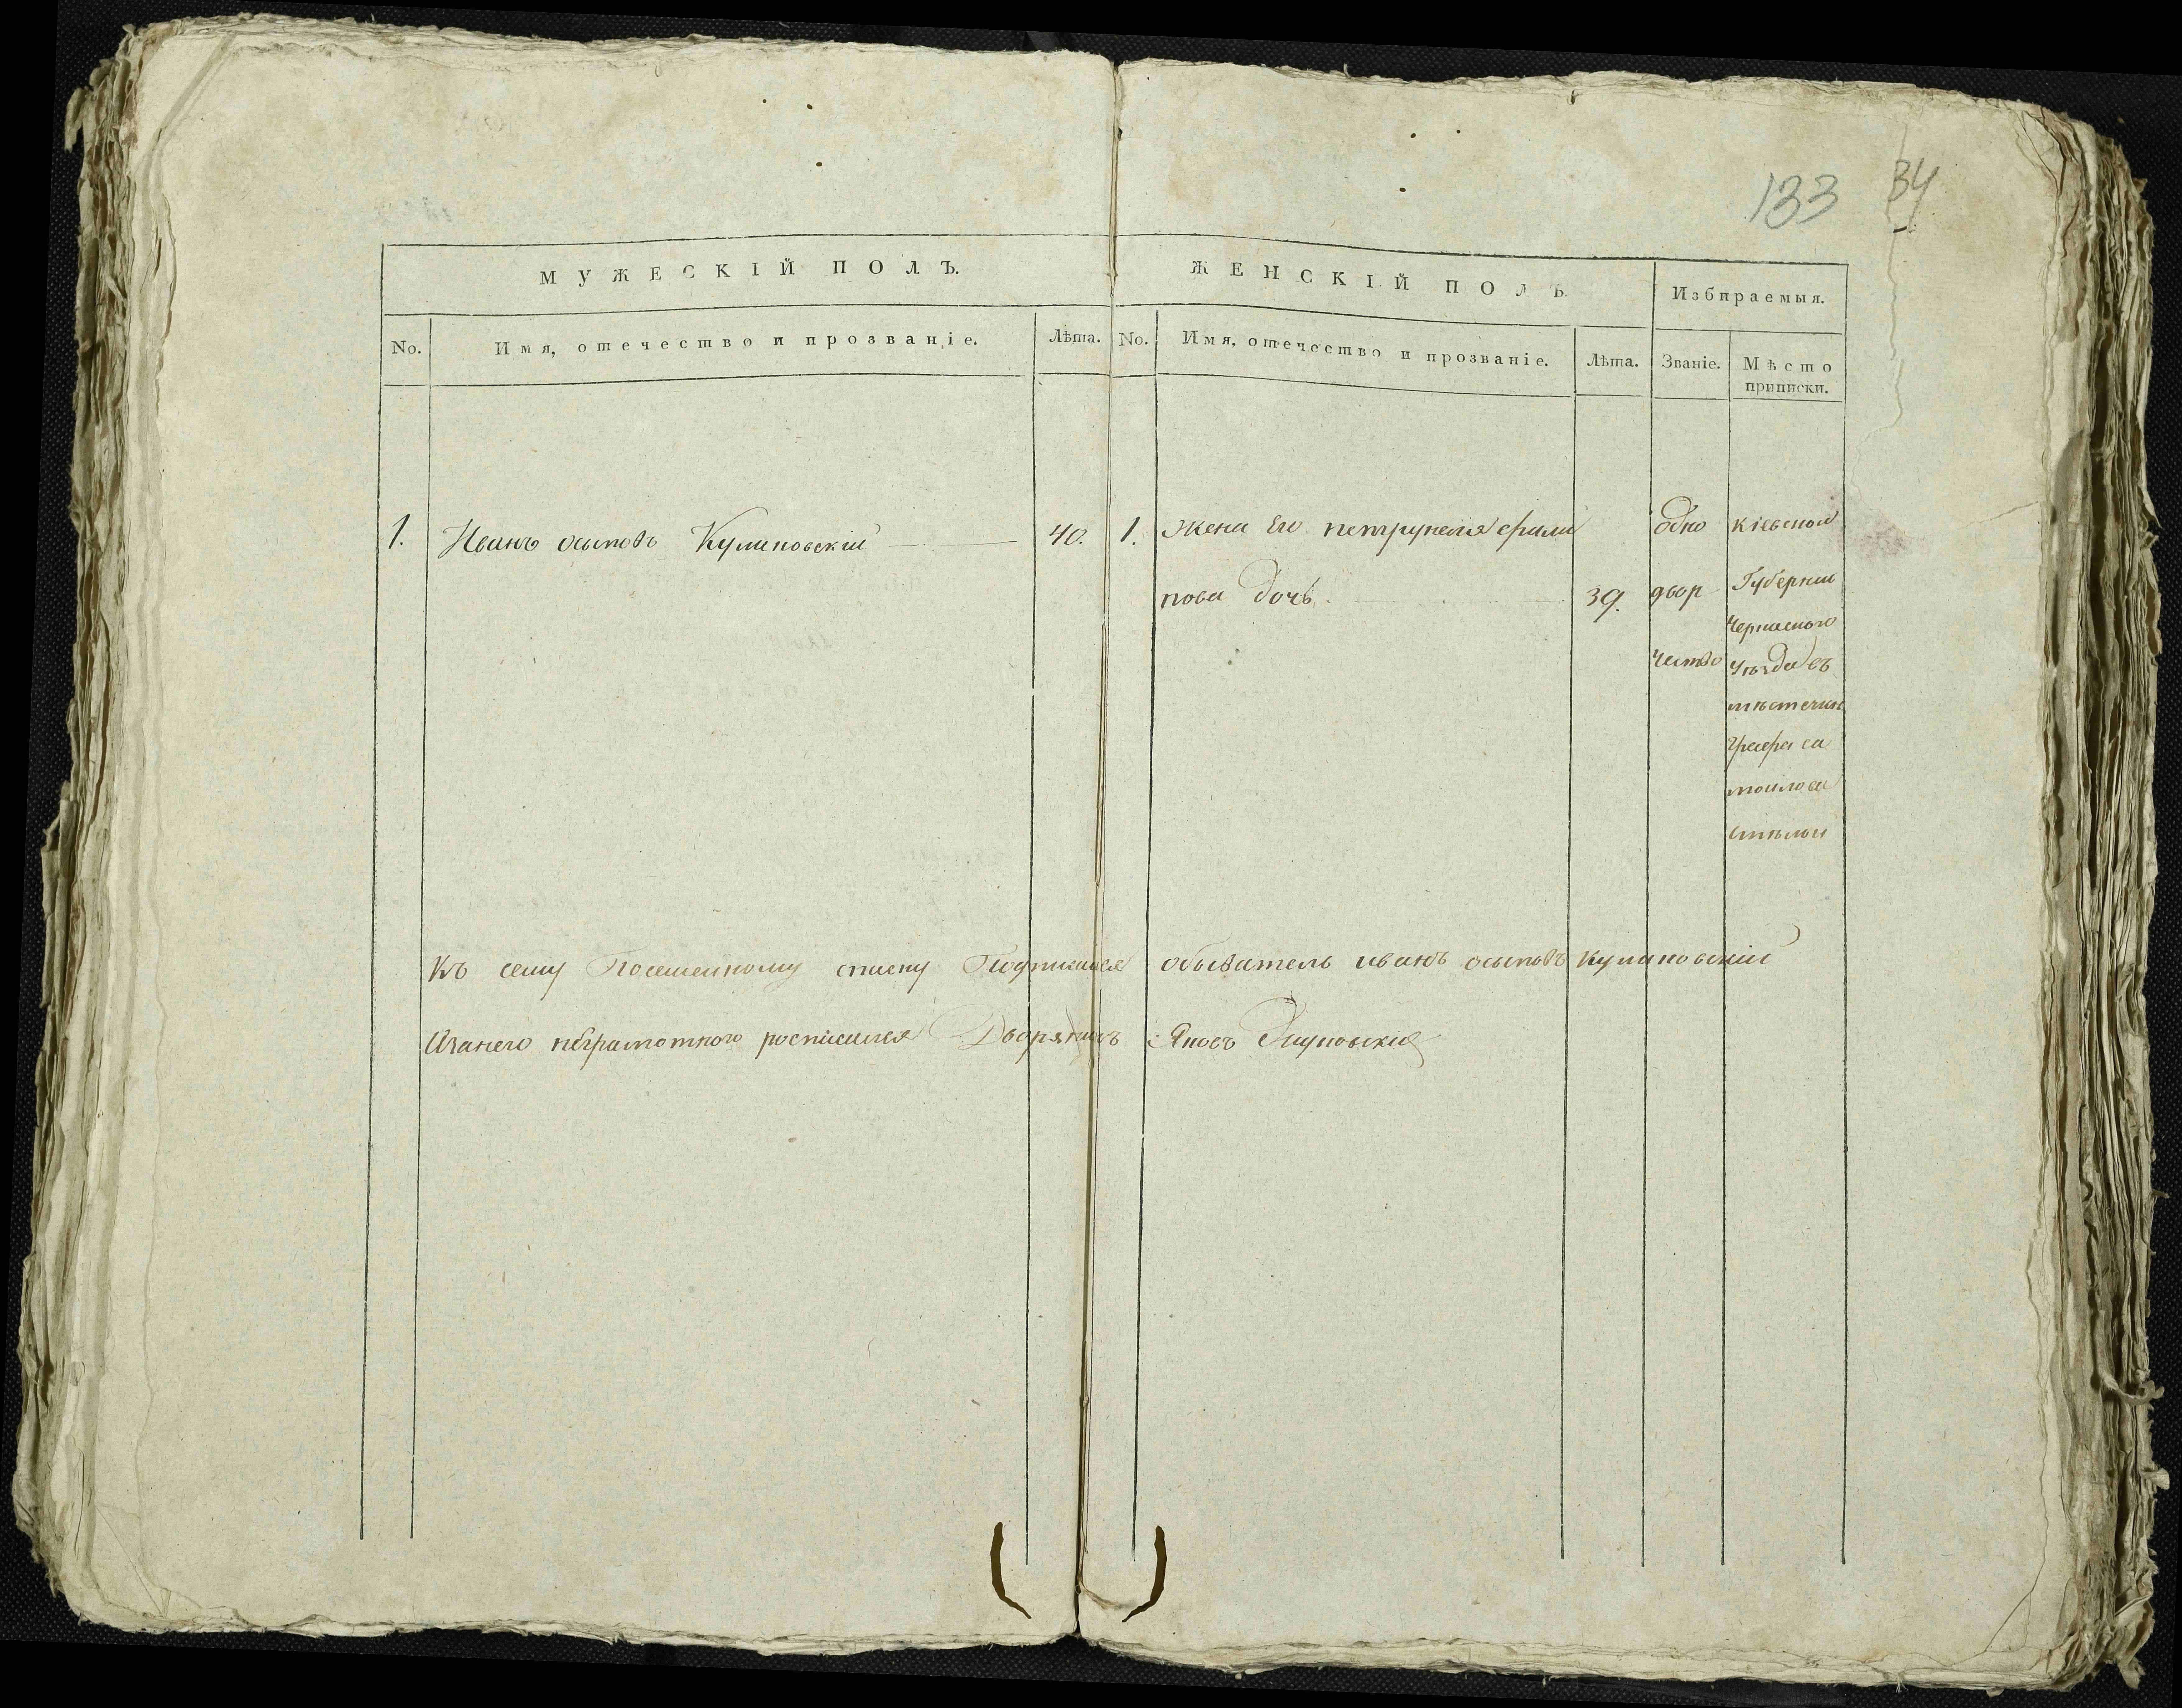 133 34
МУЖЕСКІЙ ПОЛЪ. ЖЕНСКІЙ ПОЛЪ. Избираемыя.
No. Имя, отечество и прозваніе. Лѣта. No. Имя, отечество и прозваніе. Лѣта. Званіе. Мѣсто
приписки.
1. Иванъ осыповъ Кулиновскій 40. 1. жена Его петрунеля фили
пова дочь 39.
одно
двор
чество
кіевской
Губерніи
Черкаского
уѣзда въ
мѣстечки
Графа са
мойлова
смѣлой
Къ сему Посемейному списку Подписался обыватель иванъ осыповъ кулиновскій
Изанего неграмотного росписался Дворянинъ